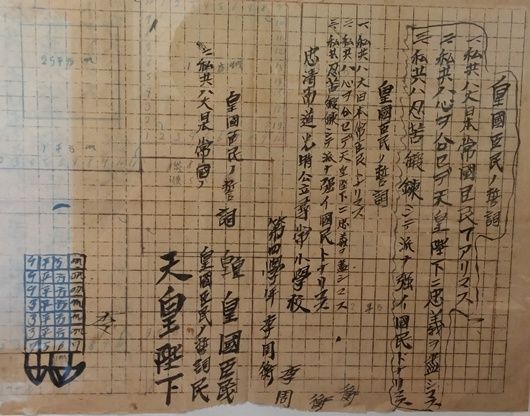 皇國臣民ノ誓詞
一、私共ハ大日本帝國臣民デアリマス
二、私共ハ心ヲ合セテ天皇陛下ニ忠義ヲ盡シマス
三、私共ハ忍苦鍛錬シテ派ナ強イ國民トナリマス
皇國臣民ノ誓詞
一、私共ハ大日本帝國臣民デアリマス
二、私共ハ心ヲ合セテ天皇陛下ニ忠義ヲ盡シマス
三、私共ハ忍苦鍛錬シテ派ナ強イ國民トナリマス
忠清南道光明公立尋常小學校
第四學年 李周衡
李周衡
皇國臣民ノ誓詞
私共ハ大日本帝國
皇國臣民
皇國臣民ノ誓詞民
天皇陛下